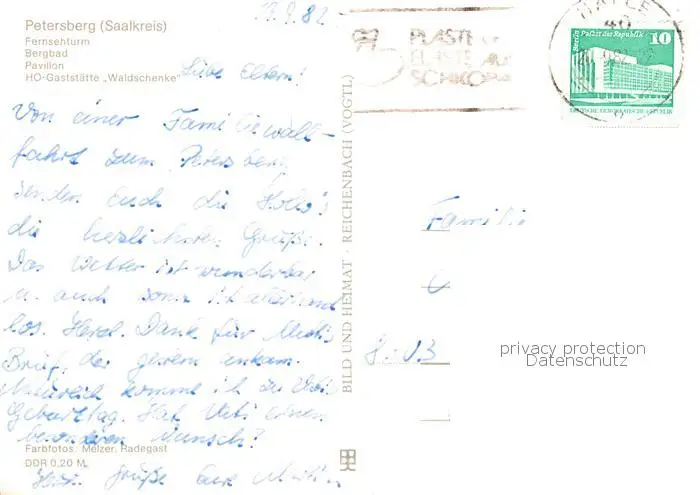 Petersberg (Saalkreis)
Fernsehturm
Bergbad
Pavillon
HO-Gaststätte „Waldschenke"
13.9.82
Liebe Eltern!
Von einer Familiewall-
fahrt zum Petersberg
senden Euch die
die herzlichsten Grüße.
Das Wetter ist wunderbar
u. auch sonst ist allerhand
los. Herzl. Dank für
Brief, der gestern ankam.
Natürlich komme ich zu
Geburtstag. Hat einen
besonderen Wunsch?
Herzl. Grüße Eure
Farbfotos: Melzer, Radegast
DDR 0,20 M
BILD UND HEIMAT · REICHENBACH (VOGTL)
PLASTE
ELASTE AUS
SCHKOPAU
HALLE
40
Berlin Palast der Republik
10
DEUTSCHE DEMOKRATISCHE REPUBLIK
Familie
privacy protection
Datenschutz